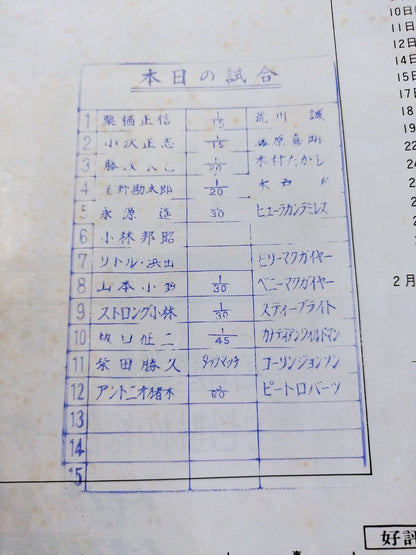 本日の試合
1 栗栖正信 1/15 荒川 誠
2 小沢正志 1/15 藤原喜明
3 藤 1/20 木村たかし
4 勘太郎 1/20
5 永源遥 1/30 ヒューラカンラミレス
6 小林邦昭
7 リトル・浜田 ビリーマクガイヤー
8 山本小鉄 1/30 ベニーマクガイヤー
9 ストロング小林 1/30 スティーブライト
10 坂口征二 1/45 カナディアンワイルドマン
11 柴田勝久 タッグマッチ コーリンジョンソン
12 アントニオ猪木 1/60 ピートロバーツ
13
14
15
10日
11日
12日
14日
15日
17日
18
19
22
24
2月
好評